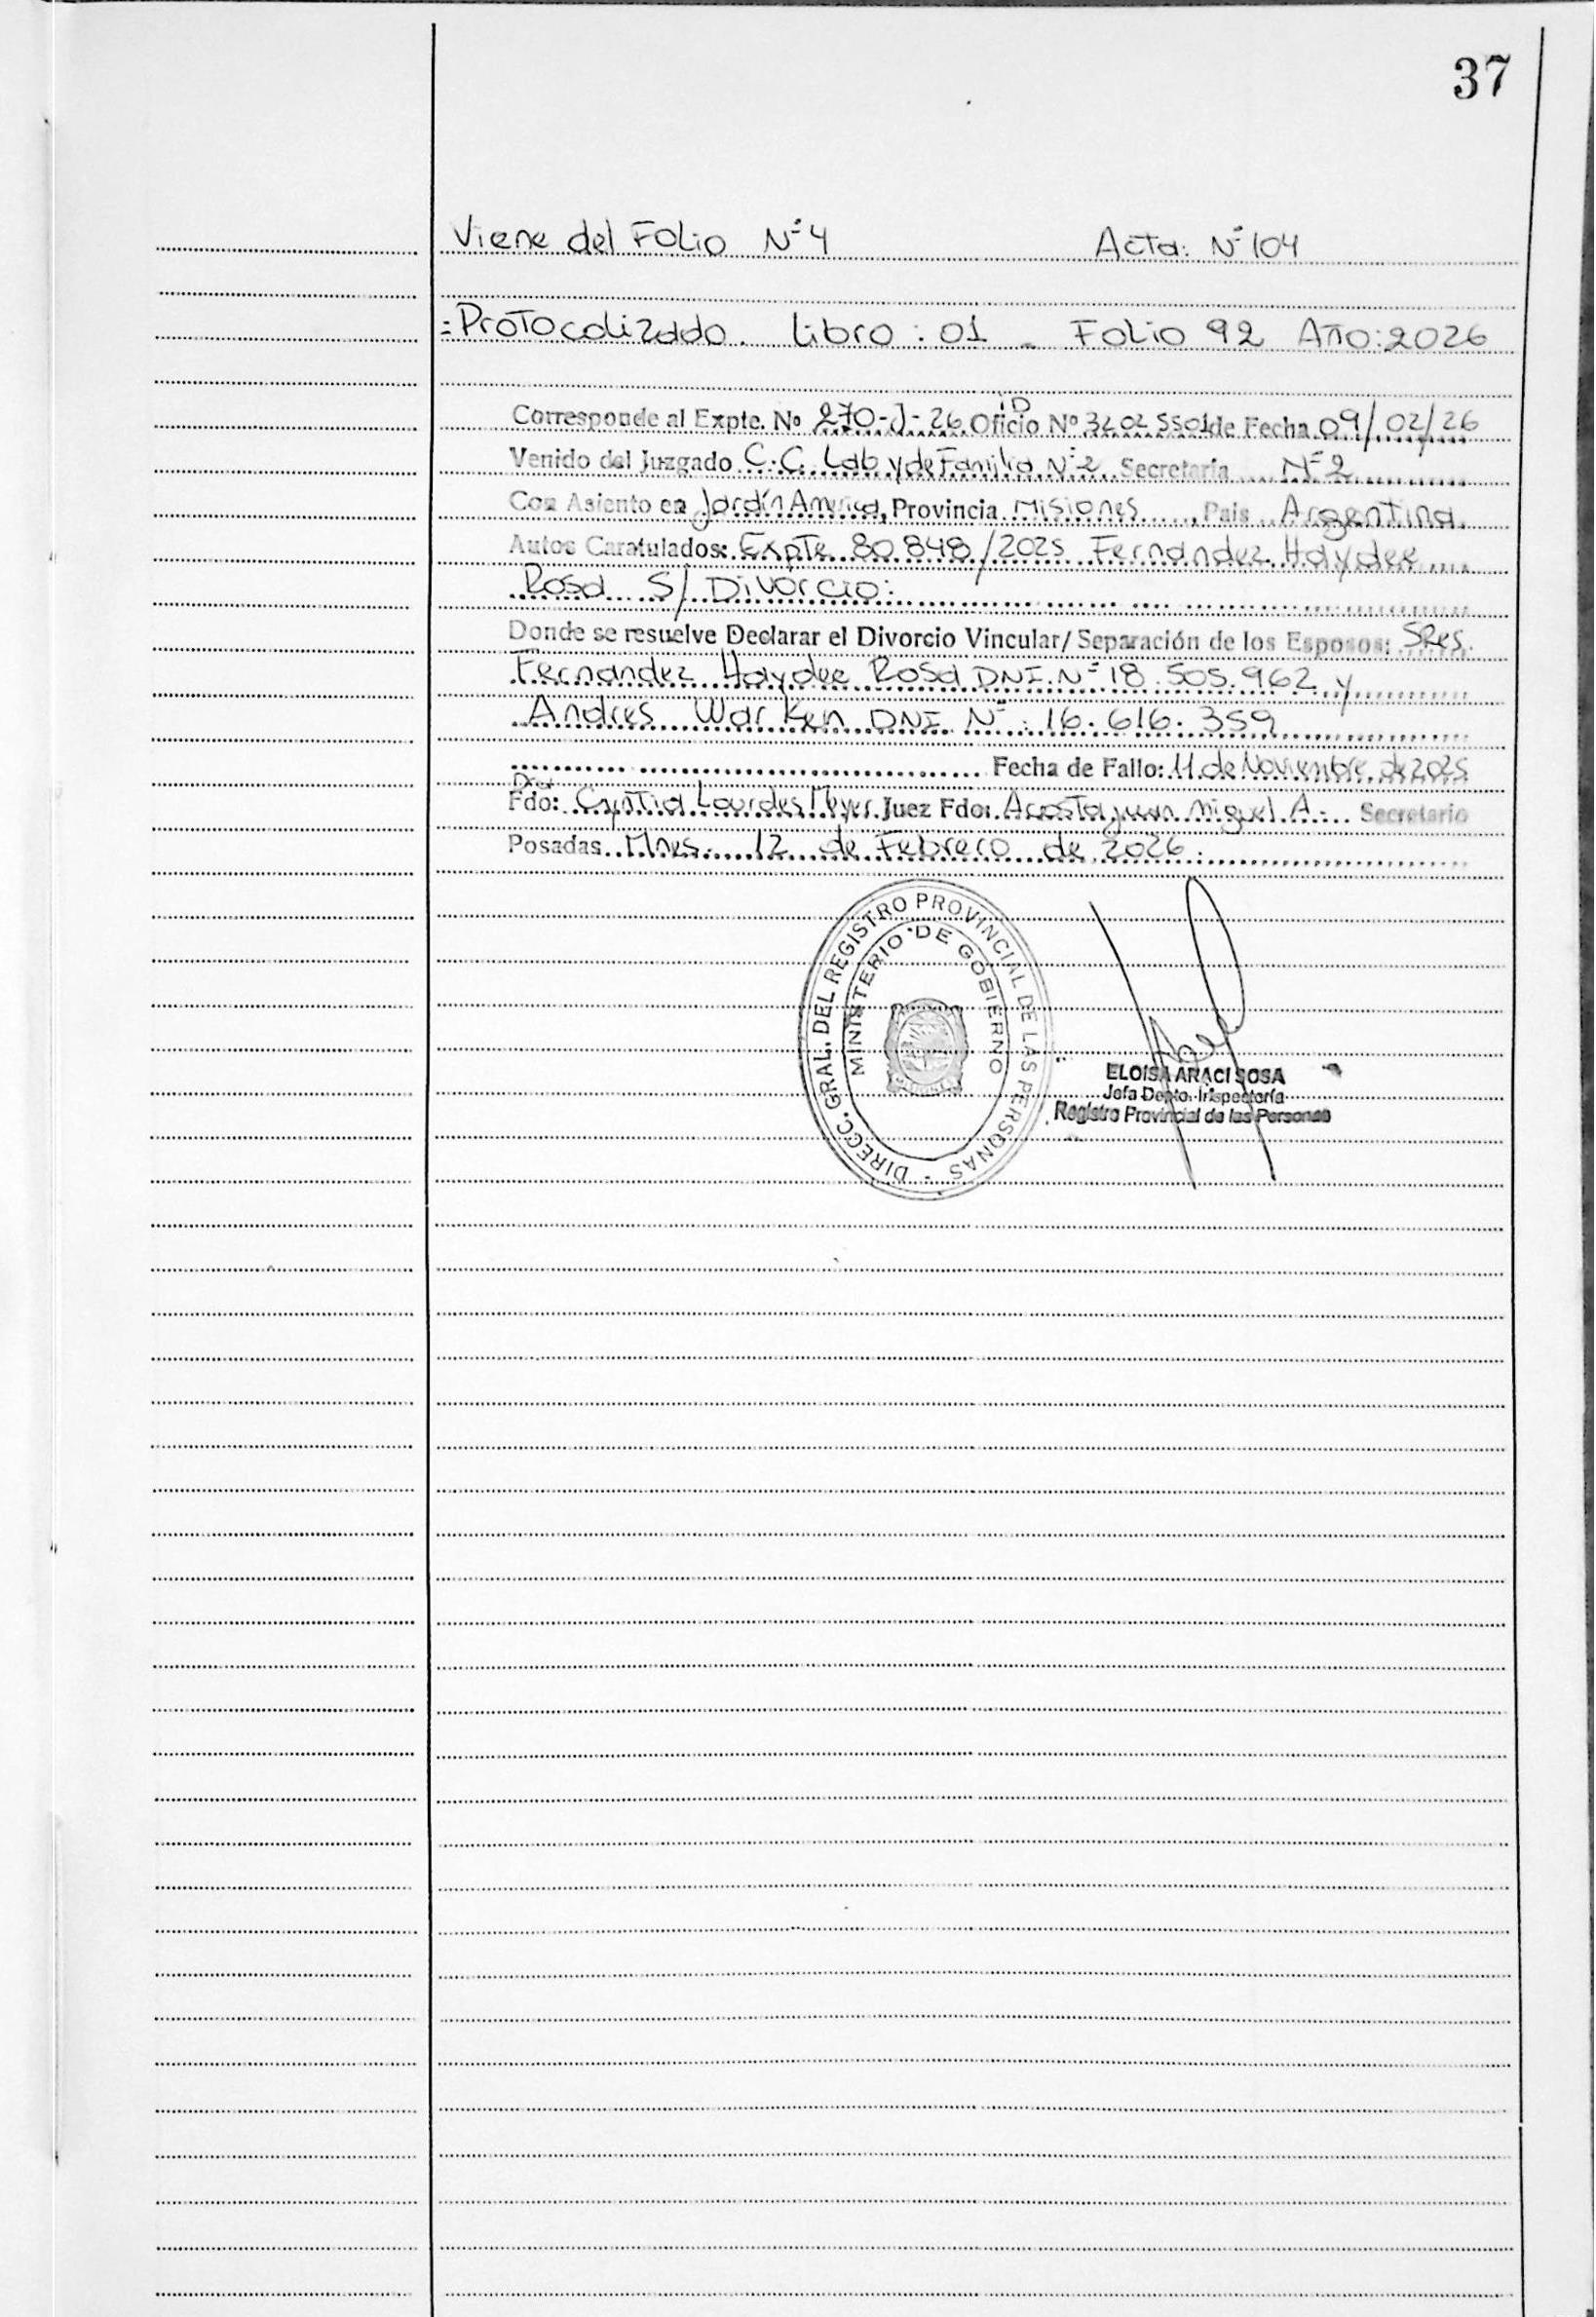 37
Viene del Folio Nº 4 Acta: Nº 104
=Protocolizado. Libro: 01 - Folio 92 Año: 2026
Corresponde al Expte. Nº 270-J-26 Oficio ID Nº 32025501 de Fecha 09/02/26
Venido del Juzgado C.C. Lab y de Familia Nº 2 Secretaría Nº 2
Con Asiento en Jardín América, Provincia Misiones, País Argentina.
Autos Caratulados: Expte 80.848/2025 Fernandez Haydee
Rosa S/ Divorcio:
Donde se resuelve Declarar el Divorcio Vincular/ Separación de los Esposos: SRes.
Fernandez Haydee Rosa DNI. Nº 18.505.962 y
Andres Warken DNI Nº: 16.616.359
Fecha de Fallo: 11 de Noviembre de 2025
Dra
Fdo: Cyntia Lourdes Meyer Juez Fdo: Acosta Juan Miguel A. Secretario
Posadas Mnes. 12 de Febrero de 2026.
DIRECC. GRAL. DEL REGISTRO PROVINCIAL DE LAS PERSONAS -
MINISTERIO DE GOBIERNO
ELOISA ARACI SOSA
Jefa Depto. Inspectoría
Registro Provincial de las Personas